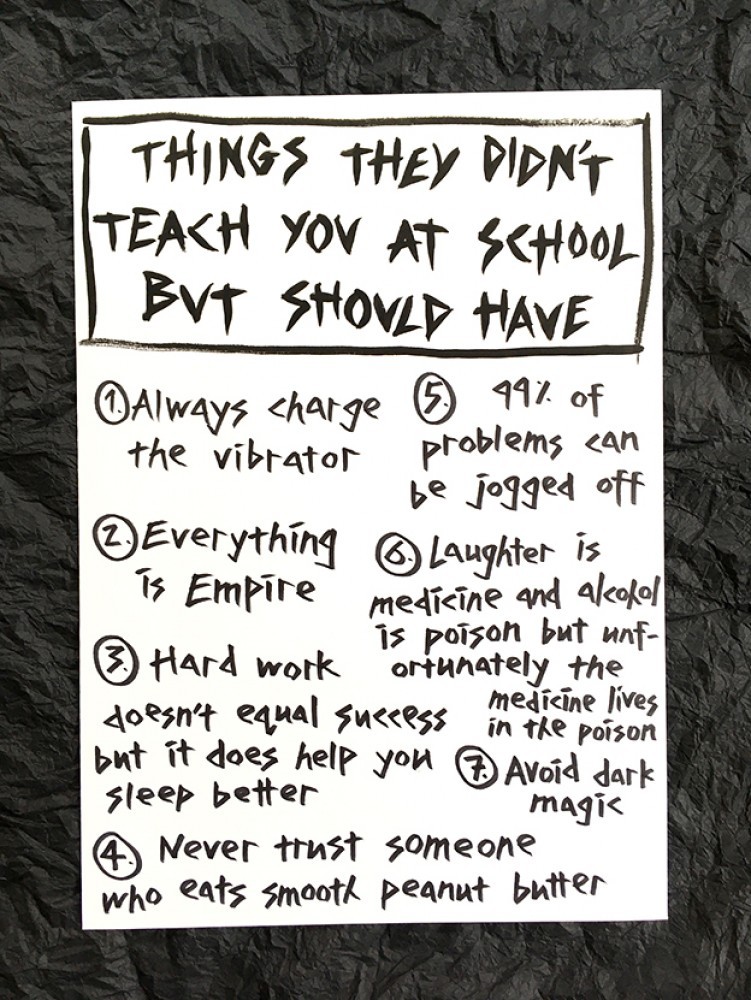 THINGS THEY DIDN'T
TEACH YOU AT SCHOOL
BUT SHOULD HAVE
1. Always charge
the vibrator
2. Everything
is Empire
3. Hard work
doesn't equal success
but it does help you
sleep better
4. Never trust someone
who eats smooth peanut butter
5. 99% of
problems can
be jogged off
6. Laughter is
medicine and alcohol
is poison but unf-
ortunately the
medicine lives
in the poison
7. Avoid dark
magic